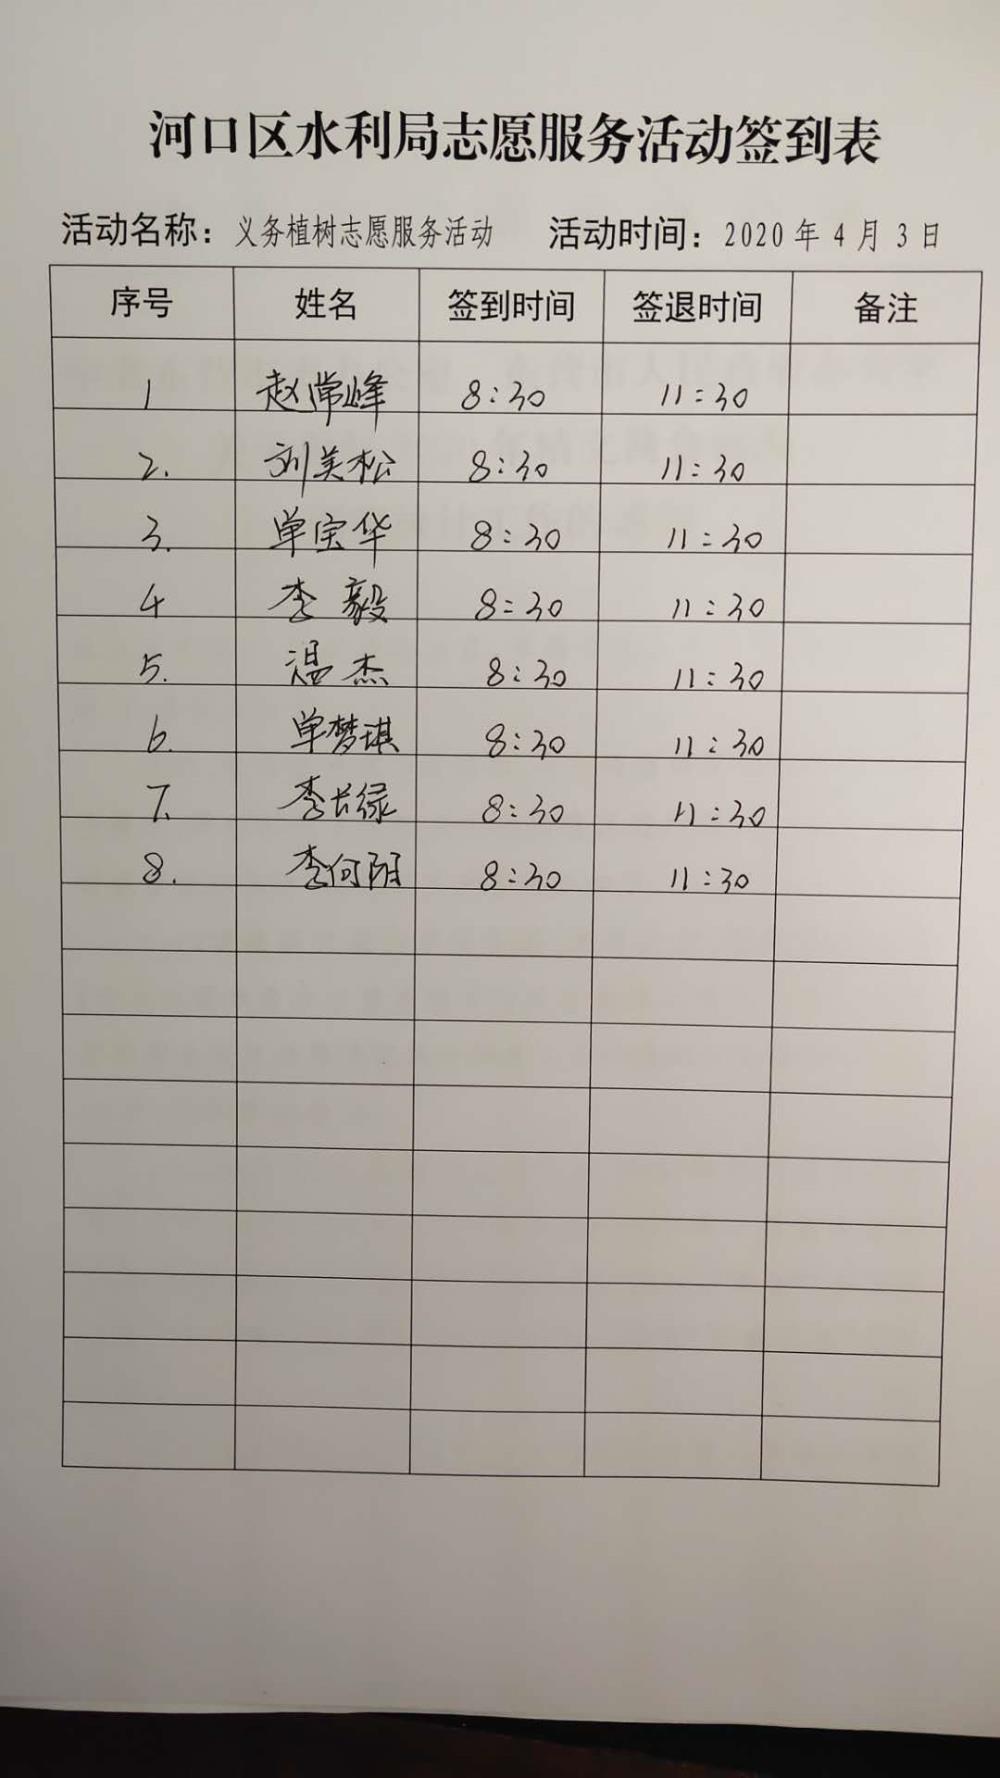 河口区水利局志愿服务活动签到表
活动名称：义务植树志愿服务活动 活动时间：2020 年 4 月 3 日
序号 姓名 签到时间 签退时间 备注
1 赵常峰 8:30 11:30
2. 刘美松 8:30 11:30
3. 单宝华 8:30 11:30
4 李毅 8:30 11:30
5. 温杰 8:30 11:30
6. 单梦琪 8:30 11:30
7. 李长绿 8:30 11:30
8. 李何阳 8:30 11:30